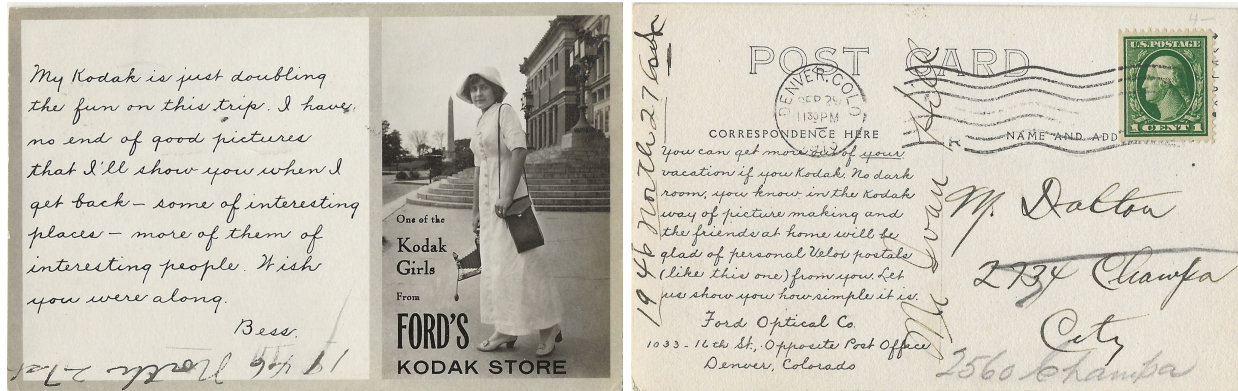 My Kodak is just doubling
the fun on this trip. I have
no end of good pictures
that I'll show you when I
get back – some of interesting
places – more of them of
interesting people. Wish
you were along.
Bess.
One of the
Kodak
Girls
From
FORD'S
KODAK STORE
North
POST CARD
DENVER, COLO
SEP
11 30 PM
U.S. POSTAGE
1 CENT 1
CORRESPONDENCE HERE
NAME AND ADD
You can get more out of your
vacation if you Kodak. No dark
room, you know, in the Kodak
way of picture making and
the friends at home will be
glad of personal Velox postals
(like this one) from you. Let
us show you how simple it is.
Ford Optical Co.
1033-16th St., Opposite Post Office
Denver, Colorado
1946 North 27
M. Dalton
2734 Champa
City
2560 Champa